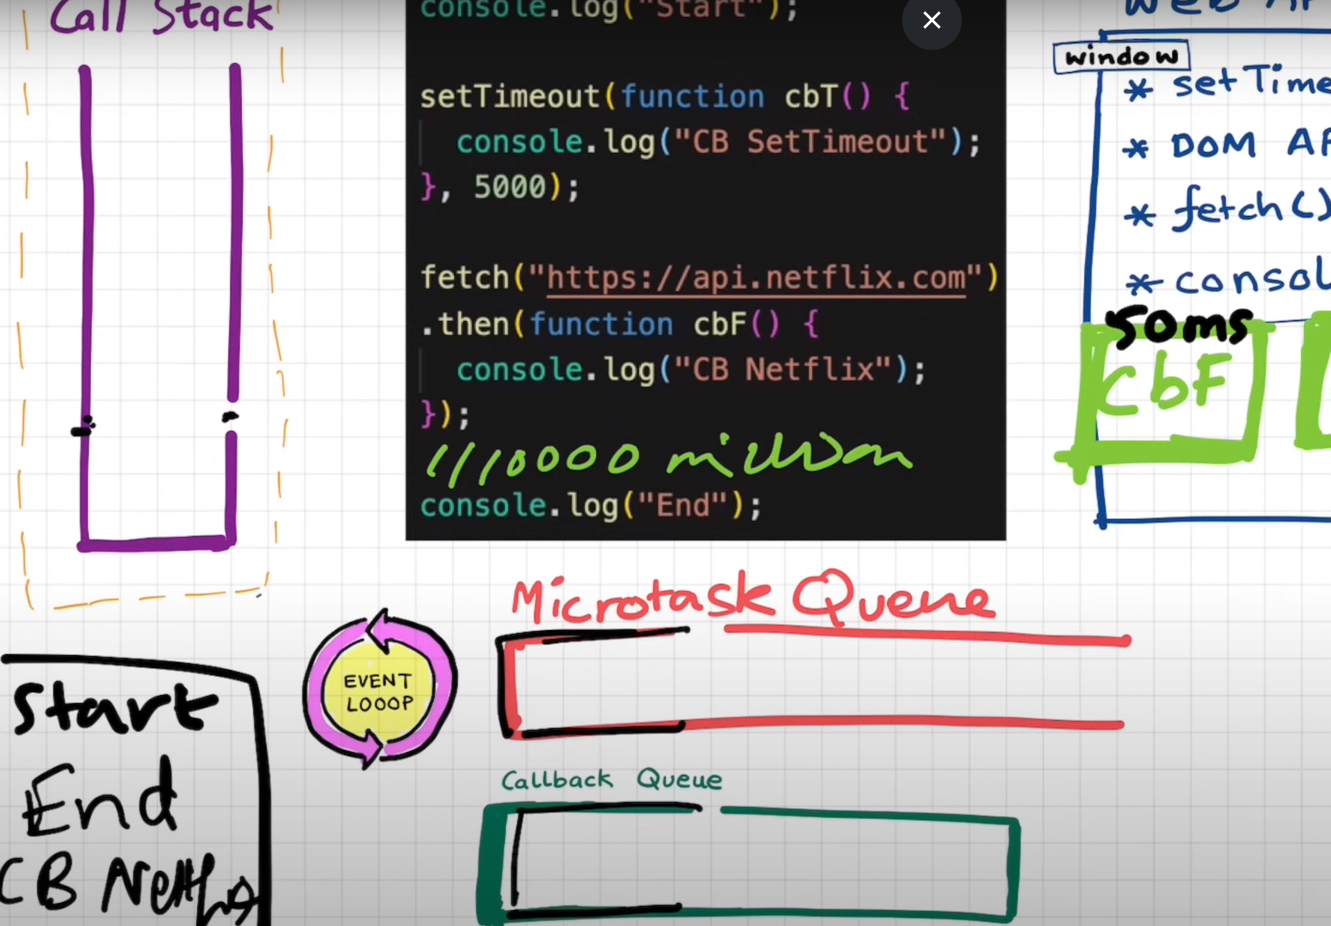 Call Stack
console.log("Start");
setTimeout(function cbT() {
console.log("CB SetTimeout");
}, 5000);
fetch("https://api.netflix.com")
.then(function cbF() {
console.log("CB Netflix");
});
1110000 million
console.log("End");
Web AP
window
* setTime
* DOM AP
* fetch()
* consol
50ms
CbF
Microtask Queue
EVENT
LOOOP
Callback Queue
Start
End
CB